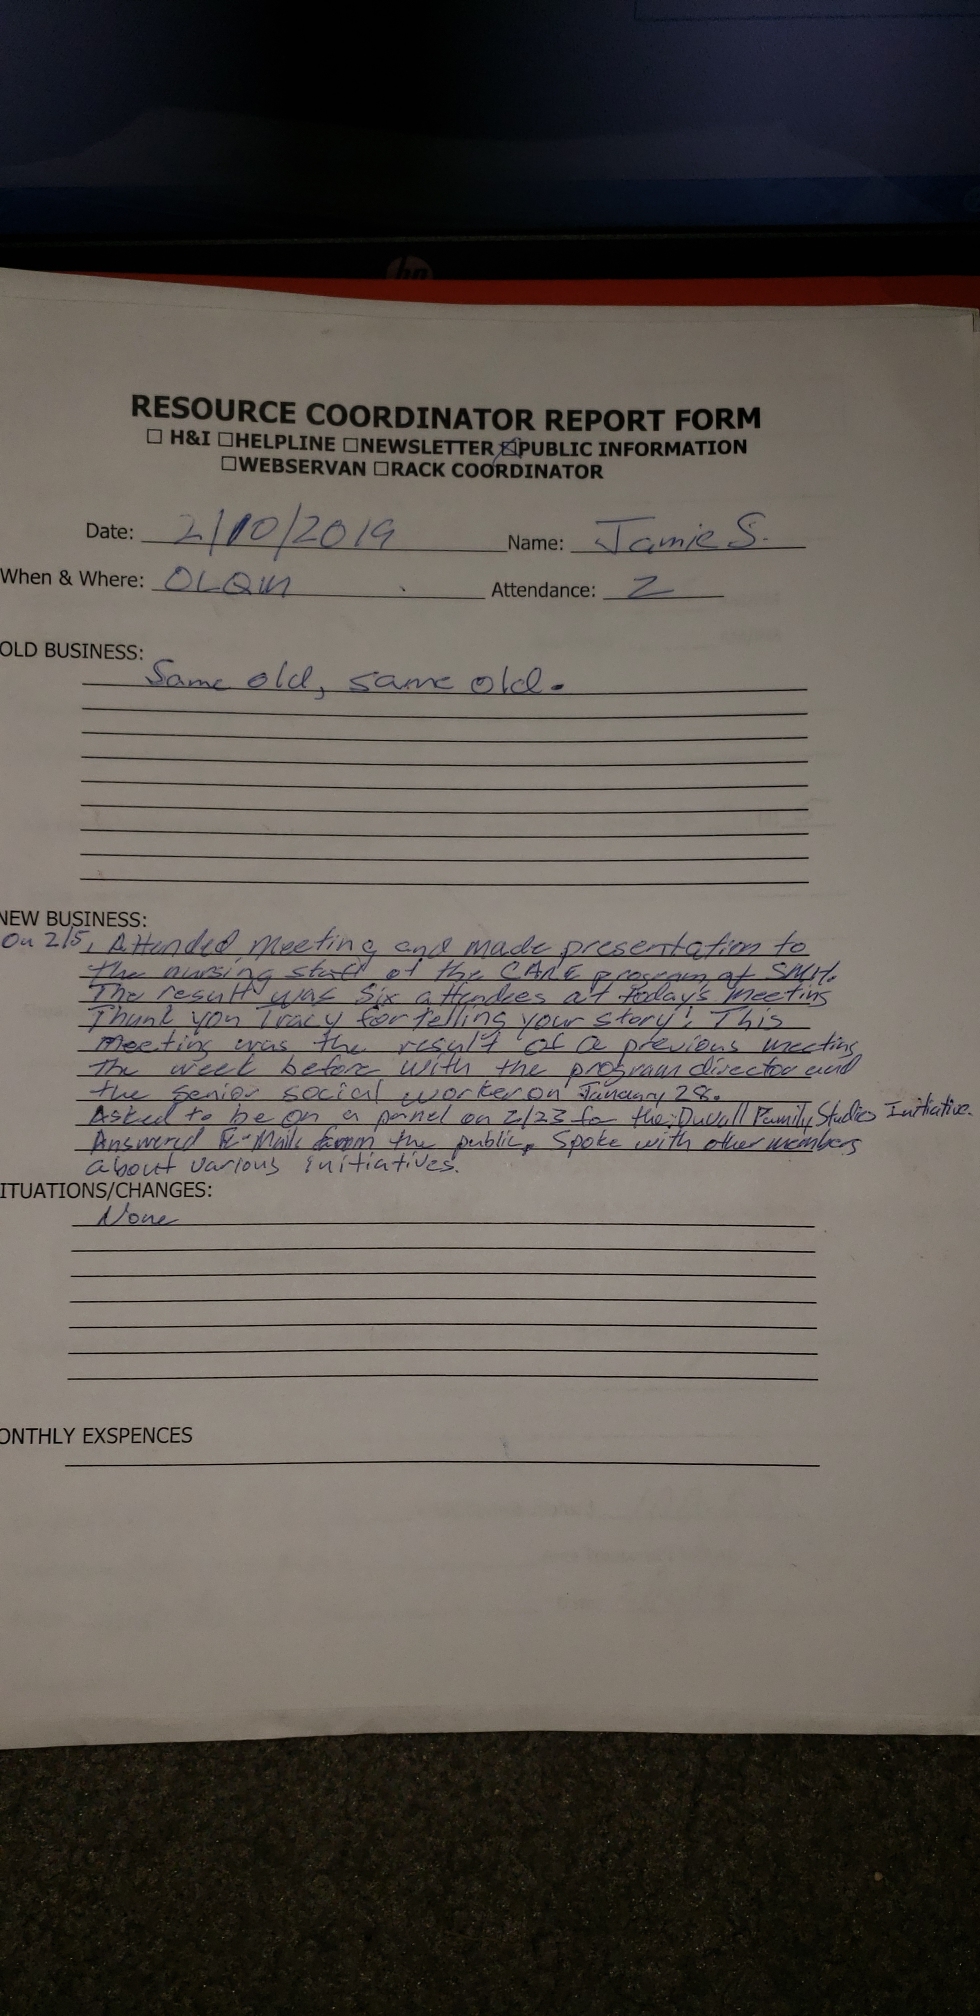 hp
RESOURCE COORDINATOR REPORT FORM
☐ H&I ☐HELPLINE ☐NEWSLETTER ☒PUBLIC INFORMATION
☐WEBSERVAN ☐RACK COORDINATOR
Date: 2/10/2019 Name: Jamie S.
When & Where: OLQM Attendance: 2
OLD BUSINESS:
Same old, same old.
NEW BUSINESS:
On 2/5, Attended Meeting and made presentation to
the nursing staff of the CARE program at SMH.
The result was six attendees at today's meeting
Thank you Tracy for telling your story! This
meeting was the result of a previous meeting
the week before with the program director and
the senior social worker on January 28.
Asked to be on a panel on 2/23 for the Duvall Family Studies Initiative.
Answered E-Mails from the public. Spoke with other members
about various initiatives.
ITUATIONS/CHANGES:
None
ONTHLY EXSPENCES